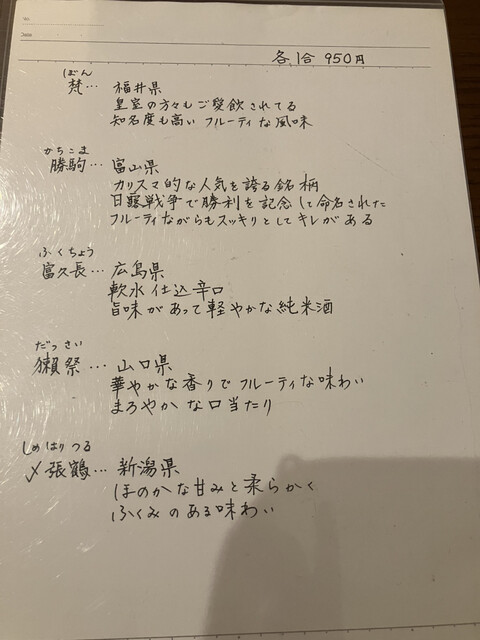 No.
Date
各1合 950円
ぼん
梵… 福井県
皇室の方々もご愛飲されてる
知名度も高い フルーティな風味
かちこま
勝駒… 富山県
カリスマ的な人気を誇る銘柄
日露戦争で勝利を記念して命名された
フルーティながらもスッキリとしてキレがある
ふくちょう
富久長… 広島県
軟水仕込辛口
旨味があって軽やかな純米酒
だっさい
獺祭… 山口県
華やかな香りでフルーティな味わい
まろやかな口当たり
しめはりつる
〆張鶴… 新潟県
ほのかな甘みと柔らかく
ふくみのある味わい